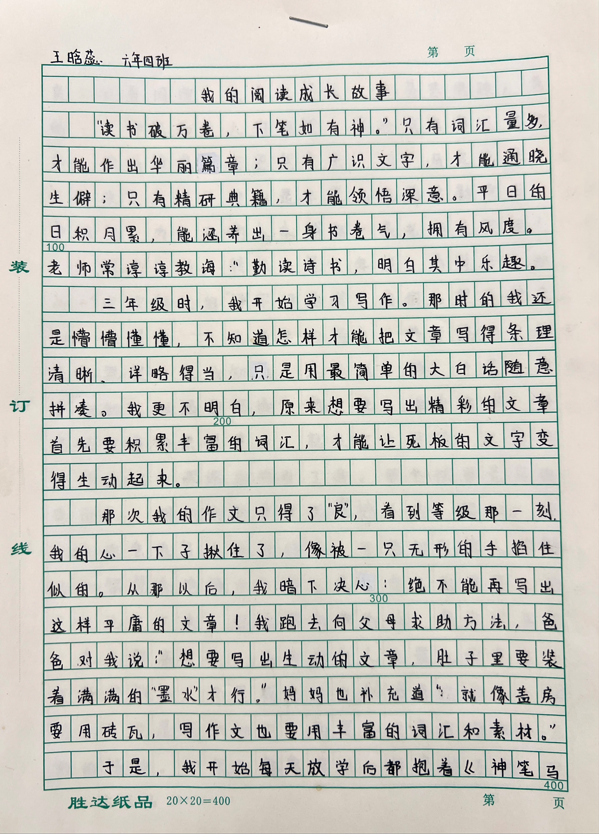 王晗蕊 六年四班
第 页
我的阅读成长故事
“读书破万卷，下笔如有神。”只有词汇量多，
才能作出华丽篇章；只有广识文字，才能通晓
生僻；只有精研典籍，才能领悟深意。平日的
日积月累，能涵养出一身书卷气，拥有风度。
100
老师常谆谆教海：“勤读诗书，明白其中乐趣。
三年级时，我开始学习写作。那时的我还
是懵懵懂懂，不知道怎样才能把文章写得条理
清晰、详略得当，只是用最简单的大白话随意
拼凑。我更不明白，原来想要写出精彩的文章
200
首先要积累丰富的词汇，才能让死板的文字变
得生动起来。
那次我的作文只得了“良”，看到等级那一刻，
我的心一下子揪住了，像被一只无形的手掐住
似的。从那以后，我暗下决心：绝不能再写出
300
这样平庸的文章！我跑去向父母求助方法，爸
爸对我说：“想要写出生动的文章，肚子里要装
着满满的“墨水”才行。”妈妈也补充道“：就像盖房
要用砖瓦，写作文也要用丰富的词汇和素材。”
于是，我开始每天放学后都抱着《神笔马
400
装
订
线
胜达纸品 20×20=400 第 页